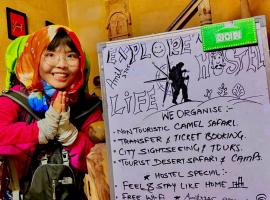 EXPLORE
HOSTEL
LIFE
WE ORGANISE:-
• NON TOURISTIC CAMEL SAFARI.
• TRANSFER & TICKET BOOKING.
• CITY SIGHTSEEING & TOURS.
• TOURIST DESERT SAFARI & CAMPS.
* HOSTEL SPECIAL:
FEEL & STAY LIKE HOME
FREE WIFI